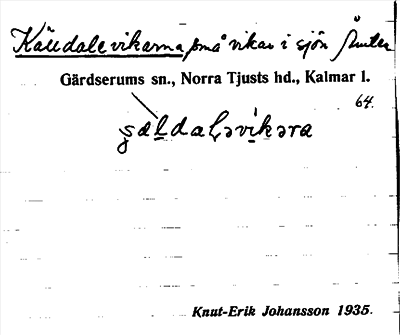 Källdalevikarna små vikar i sjön
Gärdserums sn., Norra Tjusts hd., Kalmar l.
64.
Knut-Erik Johansson 1935.